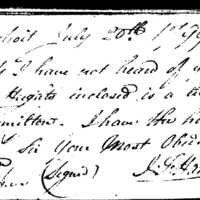 July 20th 179
I have not heard of
Hugats inclosed is a
milton. I have the ho
Sir Your Most Obed
(Signd)